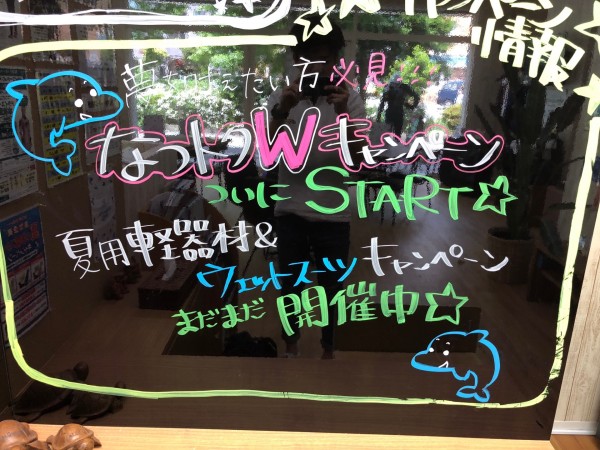 キャンペーン
情報☆
買い替えたい方必見!!!
なつトクWキャンペーン
ついにSTART☆
夏用軽器材&
ウェットスーツキャンペーン
まだまだ開催中☆